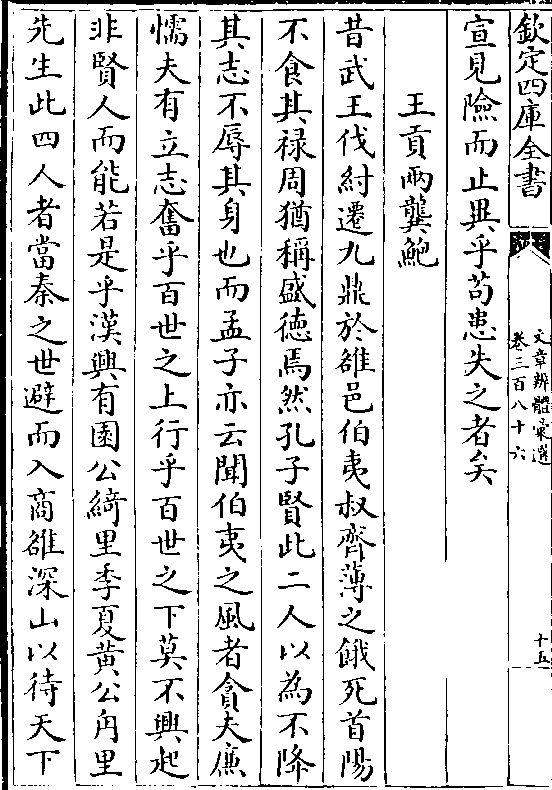 欽定四庫全書
文章辨體彙選
卷三百八十六
十五
宣見險而止異乎苟患失之者矣
王貢兩龔鮑
昔武王伐紂遷九鼎於雒邑伯夷叔齊薄之餓死首陽
不食其禄周猶稱盛德焉然孔子賢此二人以為不降
其志不辱其身也而孟子亦云聞伯夷之風者貪夫廉
懦夫有立志奮乎百世之上行乎百世之下莫不興起
非賢人而能若是乎漢興有園公綺里季夏黄公角里
先生此四人者當秦之世避而入商雒深山以待天下